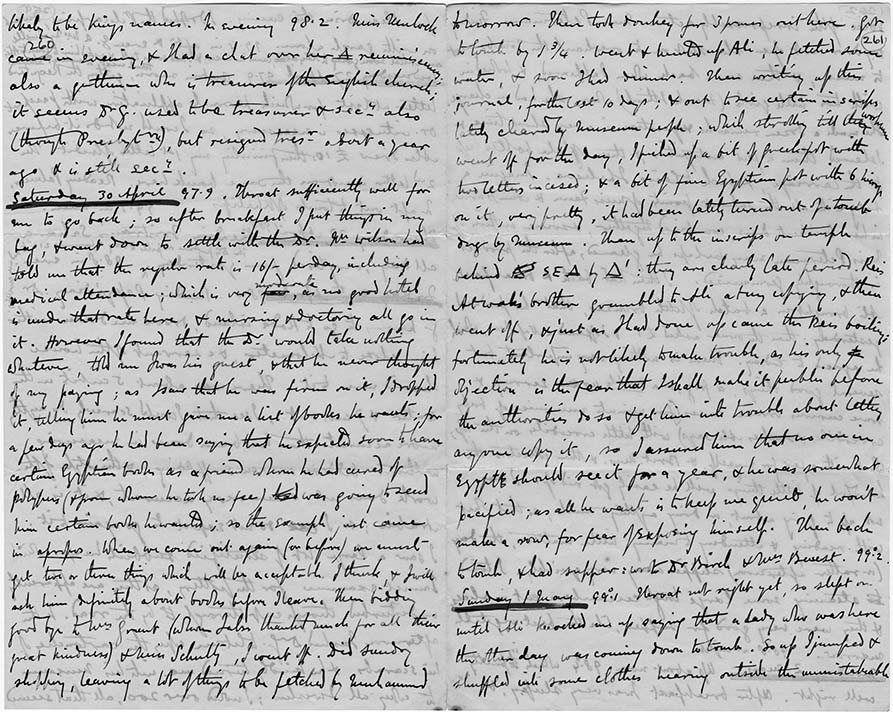 likely to be kings names. In evening 98·2. Miss Murdoch
260
came in evening, & I had a chat over her Δ reminiscences;
also a gentleman who is treasurer of the English church:
it seems Dr G. used to be treasurer & secry also
(though Presbytn), but resigned tresr about a year
ago & is still secy.
Saturday 30 April 97.9. Throat sufficiently well for
me to go back; so after breakfast I put things in my
bag, & went down to settle with the Dr. Mr Wilson had
told me that the regular rate is 16/- per day, including
moderate
medical attendance; which is very as no good hotel
is under that rate here, & nursing & doctoring all go in
it. However I found that the Dr would take nothing
whatever, told me I was his guest, & that he never thought
of my paying; as I saw that he was firm on it, I dropped
it, telling him he must give me a list of books he wants; for
a few days ago he had been saying that he expected soon to have
certain Egyptian books as a friend whom he had cured of
polypus (& from whom he took no fee) was going to send
him certain books he wanted; so the example just came
in apropos. When we come out again (or before) we must
get two or three things which will be acceptable I think, & I will
ask him definitely about books before I leave. Then bidding
good bye to Mrs Grant (whom I also thanked much for all their
great kindness) & Miss Schultz, I went off. Did sundry
shopping, leaving a lot of things to be fetched by Muhammed
tomorrow. Then took donkey for 3 francs out here. got
261
to tomb by 1 3/4 went & hunted up Ali, he fetched some
water, & soon I had dinner. Then writing up this
journal, for the last 10 days; & out to see certain inscrips
lately cleared by Museum people; while strolling till the workmen
went off for the day, I picked up a bit of Greek pot with
two letters incised; & a bit of fine Egyptian pot with 6 kings
on it, very pretty, it had been lately turned out of a tomb
dug by Museum. Then up to the inscrips on temple
behind S E Δ by Δ': they are clearly late period. Reis
Atwah's brother grumbled to Ali at my copying, & then
went off, & just as I had done, up came the Reis boiling;
fortunately he is not likely to make trouble, as his only
objection is the fear that I shall make it public before
the authorities do so & get him into trouble about letting
anyone copy it, so I assured him that no one in
Egypt should see it for a year, & he was somewhat
pacified; as all he wants is to keep me quiet, he won't
make a row, for fear of exposing himself. Then back
to tomb, & had supper: wrote Dr Birch & Miss Bewest. 99°.2.
Sunday 1 May 99°.1 Throat not right yet, so slept on
until Ali knocked me up saying that a lady who was here
the other day was coming down to tomb. So up I jumped &
shuffled into some clothes hearing outside the unmistakeable